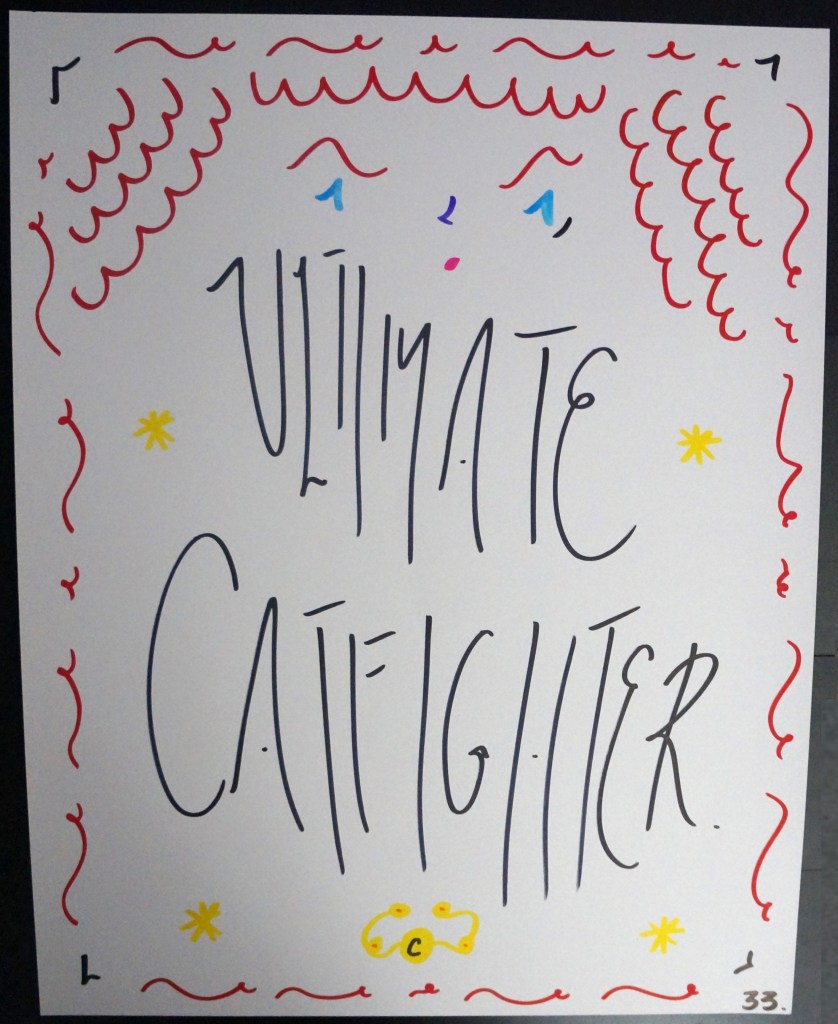 ULTIMATE
CATFIGHTER.
C
33.